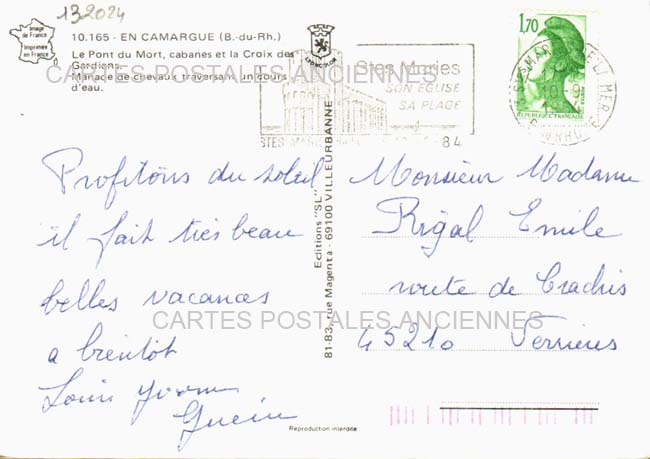 132024
Image
de France
Imprimée
en France
10.165 - EN CAMARGUE (B.-du-Rh.)
Le Pont du Mort, cabanes et la Croix des
Gardians.
Manade de chevaux traversant un cours
d'eau.
LYONCOLOR
CARTES POSTALES ANCIENNES
Stes Maries
SON EGLISE
SA PLAGE
84
1,70
REPUBLIQUE FRANÇAISE
Profitons du soleil
il fait très beau
belles vacances
a bientôt
Louis Yvonne
Guérin
Editions "SL"
81-83, rue Magenta - 69100 VILLEURBANNE
Monsieur Madame
Rigal Emile
route de
45210 Ferrières
CARTES POSTALES ANCIENNES
Reproduction interdite